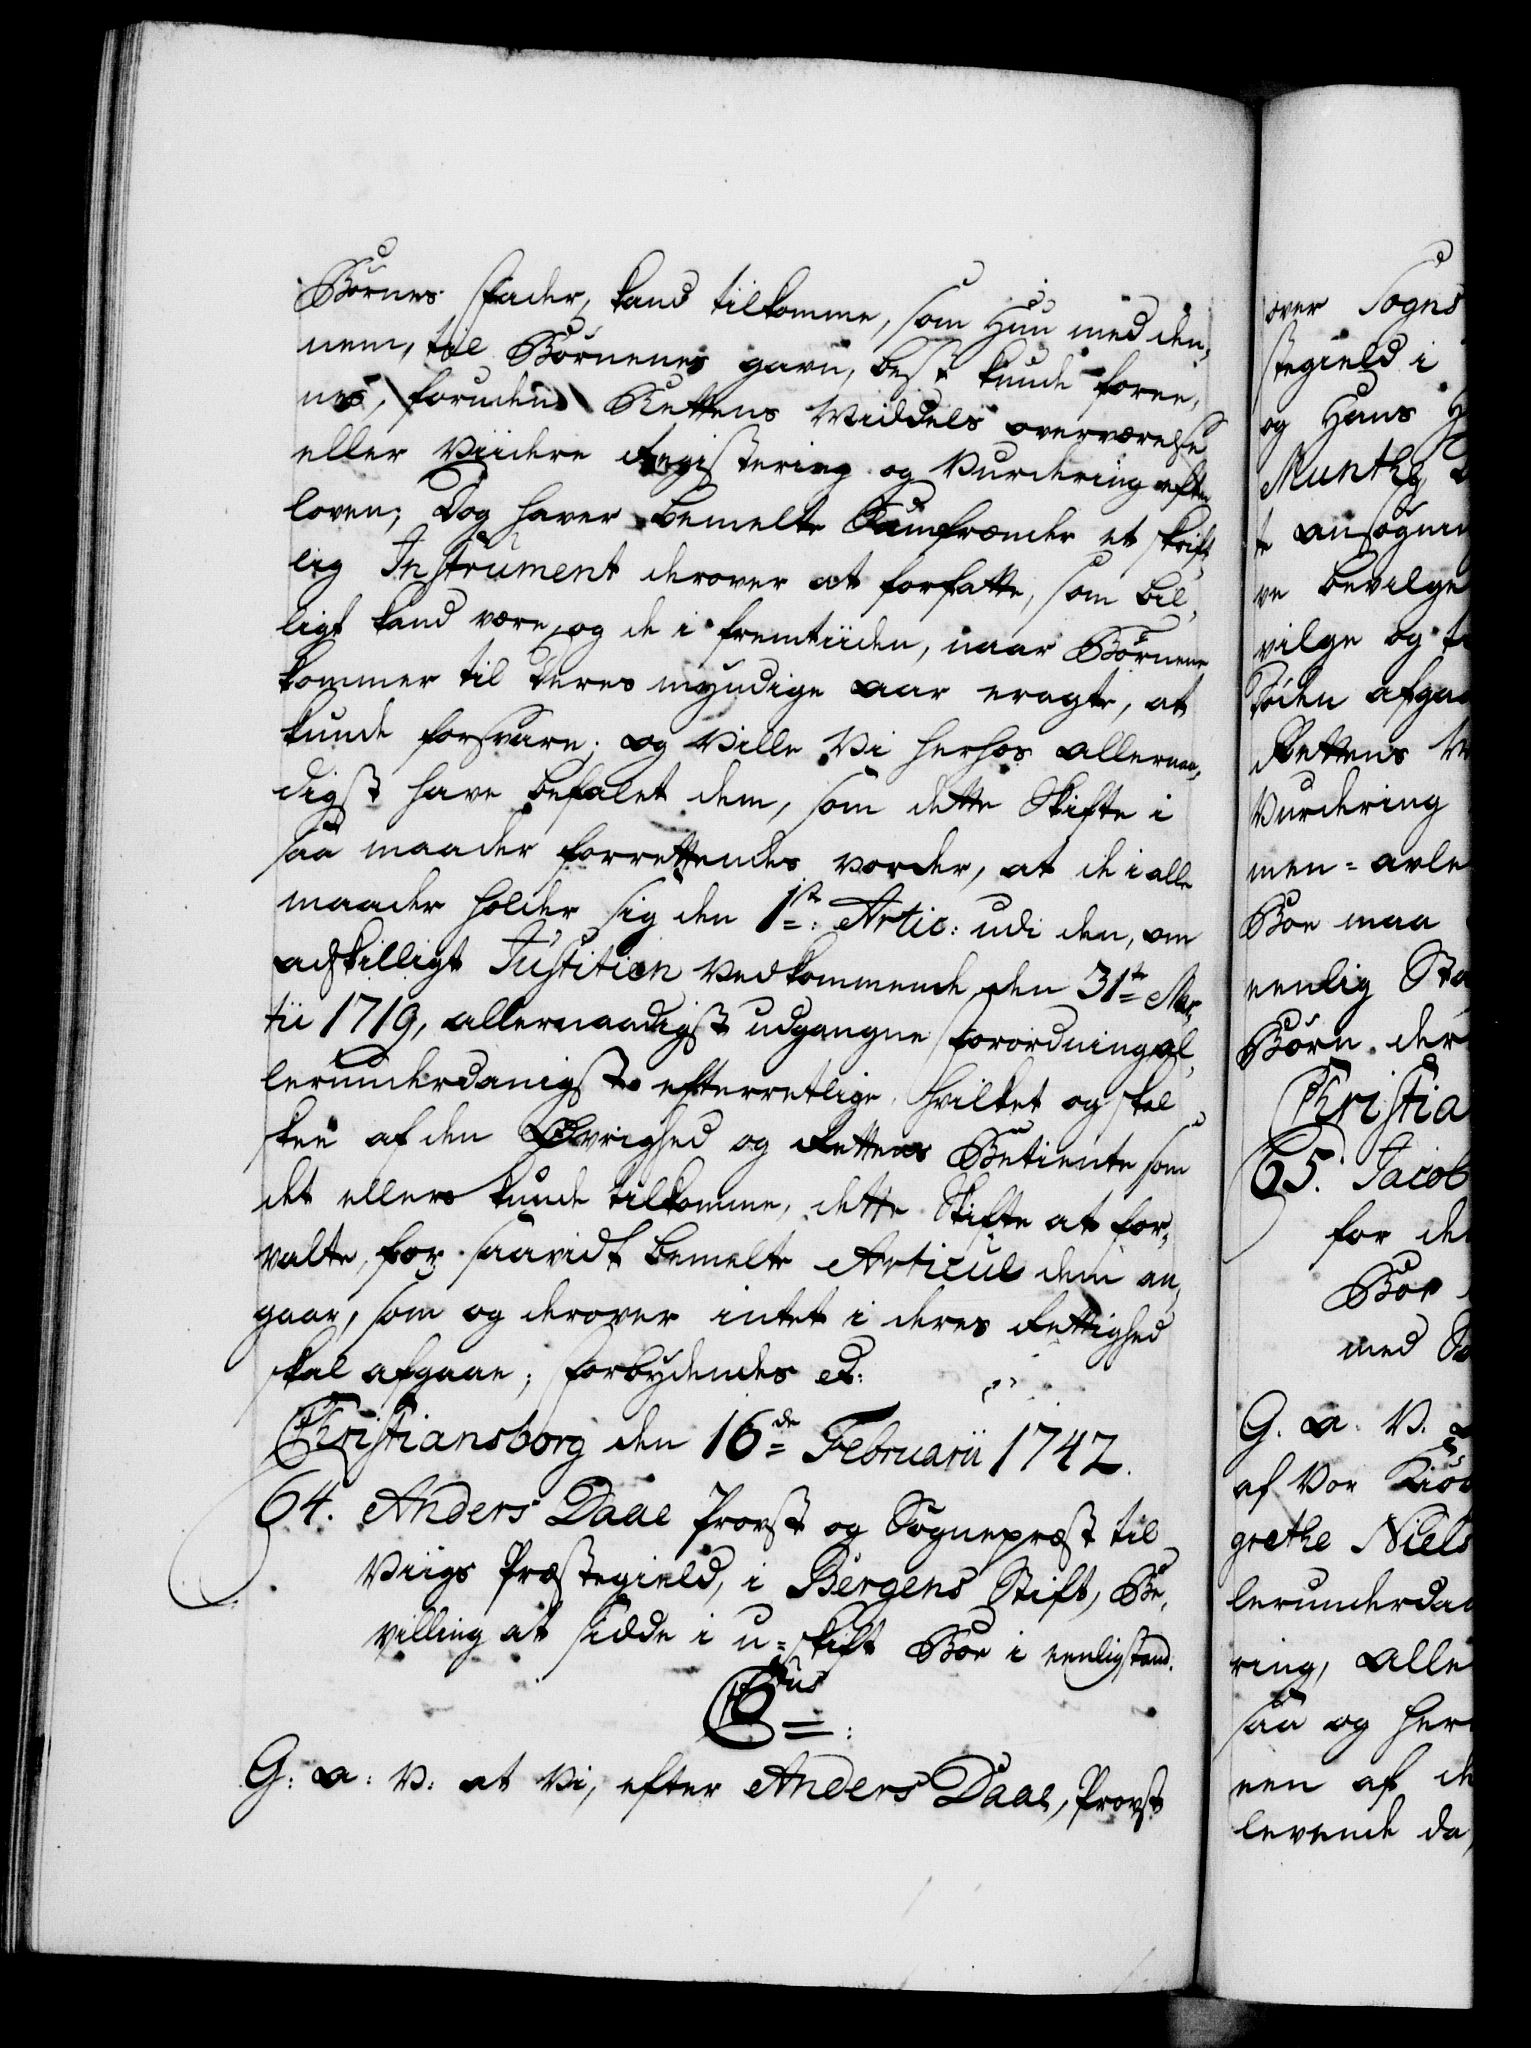 Börnes fader, kand tilkomme, som Hun med den,
nem, til Börnenes gavn, best kunde foree,
nes, foruden Rettens Middels overværelse
eller Viidere Registering og Vurdering efter
loven; Dog haver bemelte Samfrænder et skrift,
lig Instrument derover at forfatte, som bil,
ligt kand være, og de i fremtiiden, naar Börnene
kommer til deres myndige aar eragte, at
kunde forsvare; og Ville Vi herhos allernaa,
digst have befalet dem, som dette Skifte i
saa maader forrettendes vorder, at de i alle
maader holder sig den 1ste: Artic: udi den, om
adskilligt Justitien Vedkommende den 31te Mar,
tii 1719, allernaadigst udgangne forordning al,
lerunderdanigst efterretlige, hvilket og skal
skee af den Øvrighed og Rettens Betiente som
det ellers kunde tilkomme, dette Skifte at for,
valte, for saavidt bemelte Articul dem an,
gaar, som og derover intet i deres Rettighed
skal afgaae; forbydendes et:
Christiansborg den 16de Februarii 1742.
64. Anders Daae Provst og Sognepræst til
Viigs Præstegield, i Bergens Stift, Be,
villing at sidde i u=skift Boe i eenlig stand.
C6tus
G: a: V: at Vi, efter Anders Daae, Provst
over Sogns
stegield i
og Hans H
Munthe, D
t ansögni
ve bevilge
vilge og t
Döden afga
Rettens M
Vurdering
men=avle
Boe maa
eenlig Sta
Börn der
Christia
65. Jacob
for de
Boe
med Sa
G. a. V.
af Vor Kiö
grethe Niels
lerunderda
ring, alle
saa og her
een af de
levende da